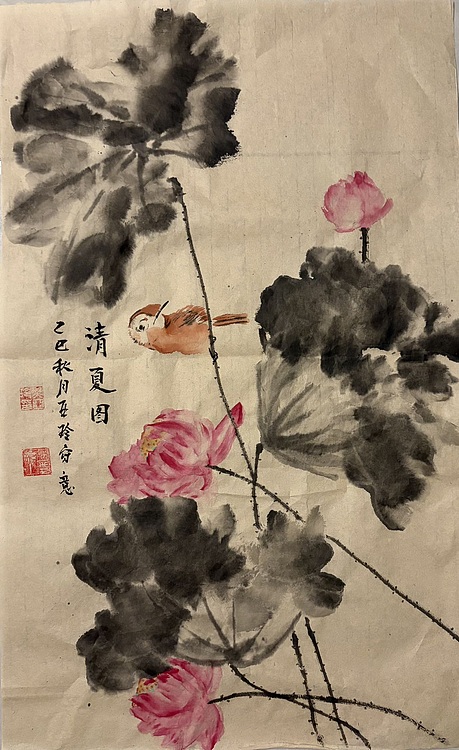 清夏图
乙巳秋月亚玲写意